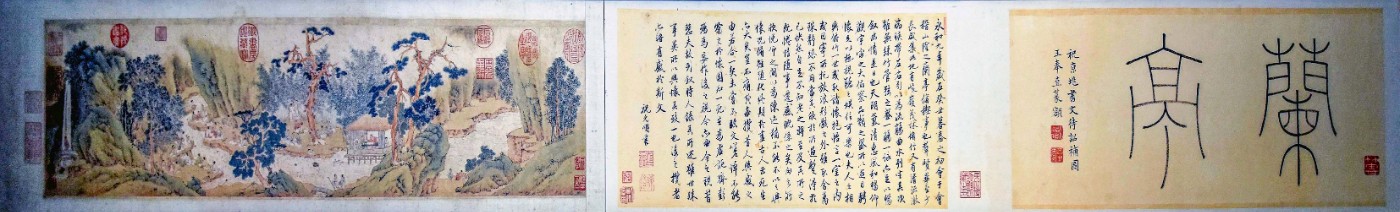 蘭亭
祝京兆書文待詔補圖
王篆題
永和九年歲在癸丑暮春之初會于會
稽山陰之蘭亭脩禊事也群賢畢至少
長咸集此地有崇山峻領茂林脩竹又有清流激
湍映帶左右引以為流觴曲水列坐其次
雖無絲竹管弦之盛一觴一詠亦足以暢
敘幽情是日也天朗氣清惠風和暢仰
觀宇宙之大俯察品類之盛所以遊目騁
懷足以極視聽之娛信可樂也夫人之相
與俯仰一世或取諸懷抱悟言一室之內
或因寄所託放浪形骸之外雖取舍萬
殊靜躁不同當其欣於所遇暫得於
己快然自足不知老之將至及其所之
既惓情隨事遷感慨係之矣向之所
欣俛仰之間以為陳迹猶不能不以之興
懷況脩短隨化終期於盡古人云死生
亦大矣豈不痛哉每攬昔人興感之
由若合一契未嘗不臨文嗟悼不能
喻之於懷固知一死生為虛誕齊彭
殤為妄作後之視今亦由今之視昔
悲夫故列敘時人錄其所述雖世殊
事異所以興懷其致一也後之攬者
亦將有感於斯文
祝允明書